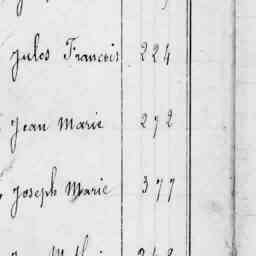 Jules Francois 224
Jean Marie 272
Joseph Marie 377